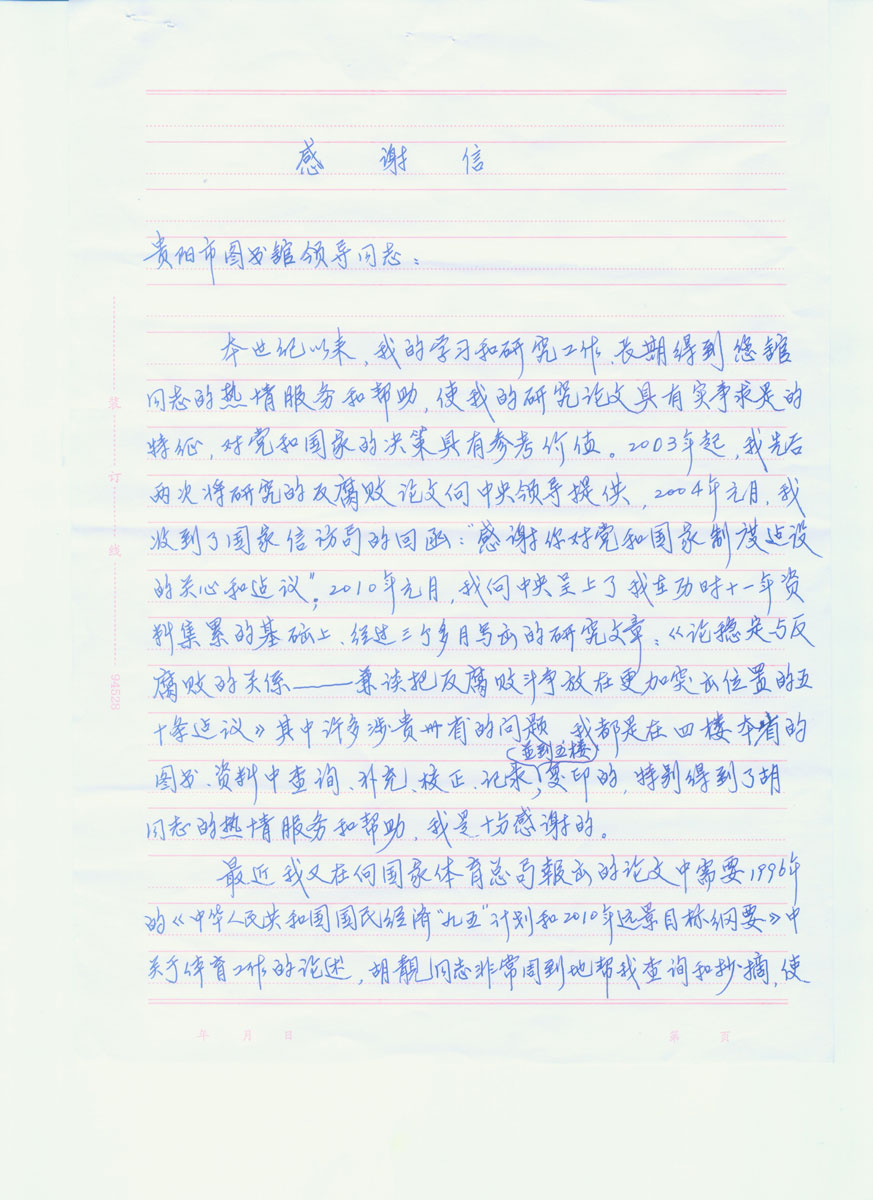 感谢信
贵阳市图书馆领导同志：
本世纪以来，我的学习和研究工作、长期得到您馆
同志的热情服务和帮助，使我的研究论文具有实事求是的
特征，对党和国家的决策具有参考价值。2003年起，我先后
两次将研究的反腐败论文向中央领导提供，2004年元月，我
收到了国家信访局的回函：“感谢你对党和国家制度建设
的关心和建议”；2010年元月，我向中央呈上了我在历时十一年资
料集累的基础上、经过三个多月写出的研究文章：《论稳定与反
腐败的关係——兼谈把反腐败斗争放在更加突出位置的五
十条建议》其中许多涉贵州省的问题，我都是在四楼本省的
並到五楼
图书、资料中查询、补充、校正、记录，复印的，特别得到了胡
同志的热情服务和帮助，我是十分感谢的。
最近我又在向国家体育总局報出的论文中需要1996年
的《中华人民共和国国民经济“九五”计划和2010年远景目标纲要》中
关于体育工作的论述，胡靓同志非常周到地帮我查询和抄摘，使
装
订
线
94528
年 月 日
第 页